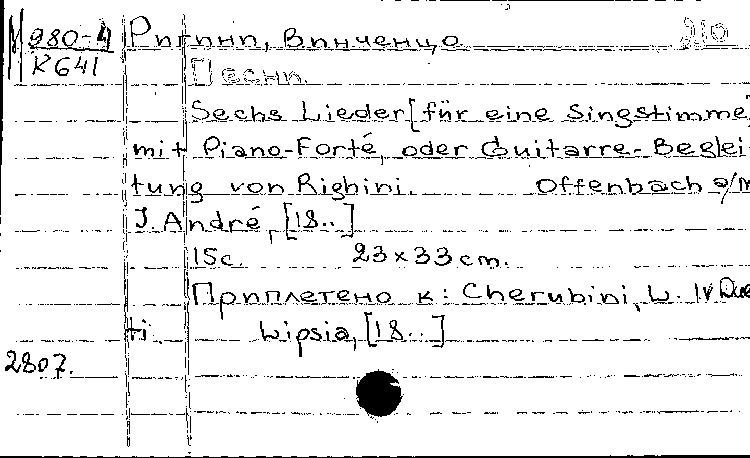 980-4 Ригини, Винченцо 210
К641 Песни.
Sechs Lieder [für eine Singstimme]
mit Piano-Forté, oder Guitarre-Beglei-
tung von Righini. Offenbach a/M
J. André, [18..]
15c. 23x33cm.
Приплетено к: Cherubini, L. IV Duet-
ti. Lipsia, [18..]
2807.